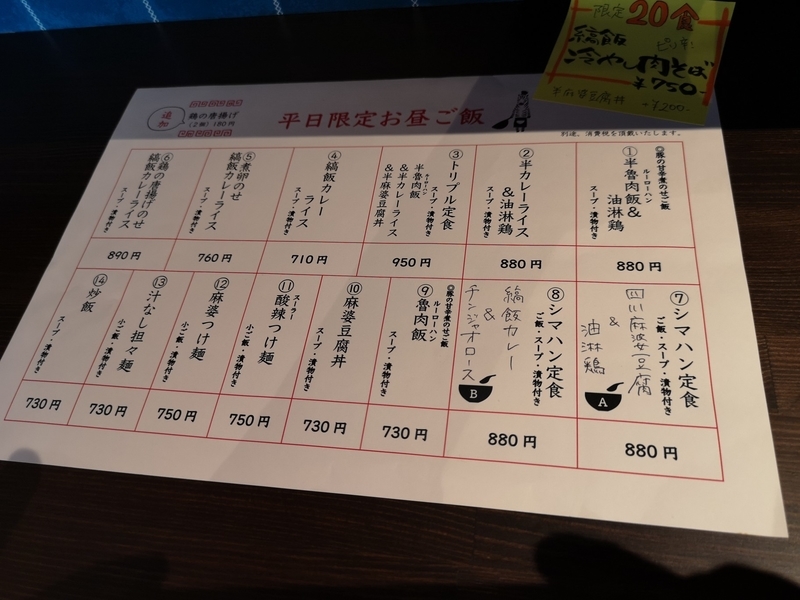 限定20食
縞飯 ピリ辛
冷やし肉そば
¥750-
半麻婆豆腐丼
-¥200-
追加
鶏の唐揚げ
(2個)180円
平日限定お昼ご飯
別途、消費税を頂戴いたします。
◎豚の甘辛煮のせご飯
ルーローハン
①半魯肉飯&
油淋鶏
スープ・漬物付き
880円
②半カレーライス
&油淋鶏
スープ・漬物付き
880円
③トリプル定食
スープ・漬物付き
ルーローハン
半魯肉飯
&半カレーライス
&半麻婆豆腐丼
950円
④縞飯カレー
ライス
スープ・漬物付き
710円
⑤煮卵のせ
縞飯カレーライス
スープ・漬物付き
760円
⑥鶏の唐揚げのせ
縞飯カレーライス
スープ・漬物付き
890円
⑦シマハン定食
ご飯・スープ・漬物付き
四川麻婆豆腐
&
油淋鶏
A
880円
⑧シマハン定食
ご飯・スープ・漬物付き
縞飯カレー
&
チンジャオロース
B
880円
◎豚の甘辛煮のせご飯
ルーローハン
⑨魯肉飯
スープ・漬物付き
730円
⑩麻婆豆腐丼
スープ・漬物付き
730円
スーラー
⑪酸辣つけ麺
小ご飯・漬物付き
750円
⑫麻婆つけ麺
小ご飯・漬物付き
750円
⑬汁なし担々麺
小ご飯・スープ・漬物付き
730円
⑭炒飯
スープ・漬物付き
730円